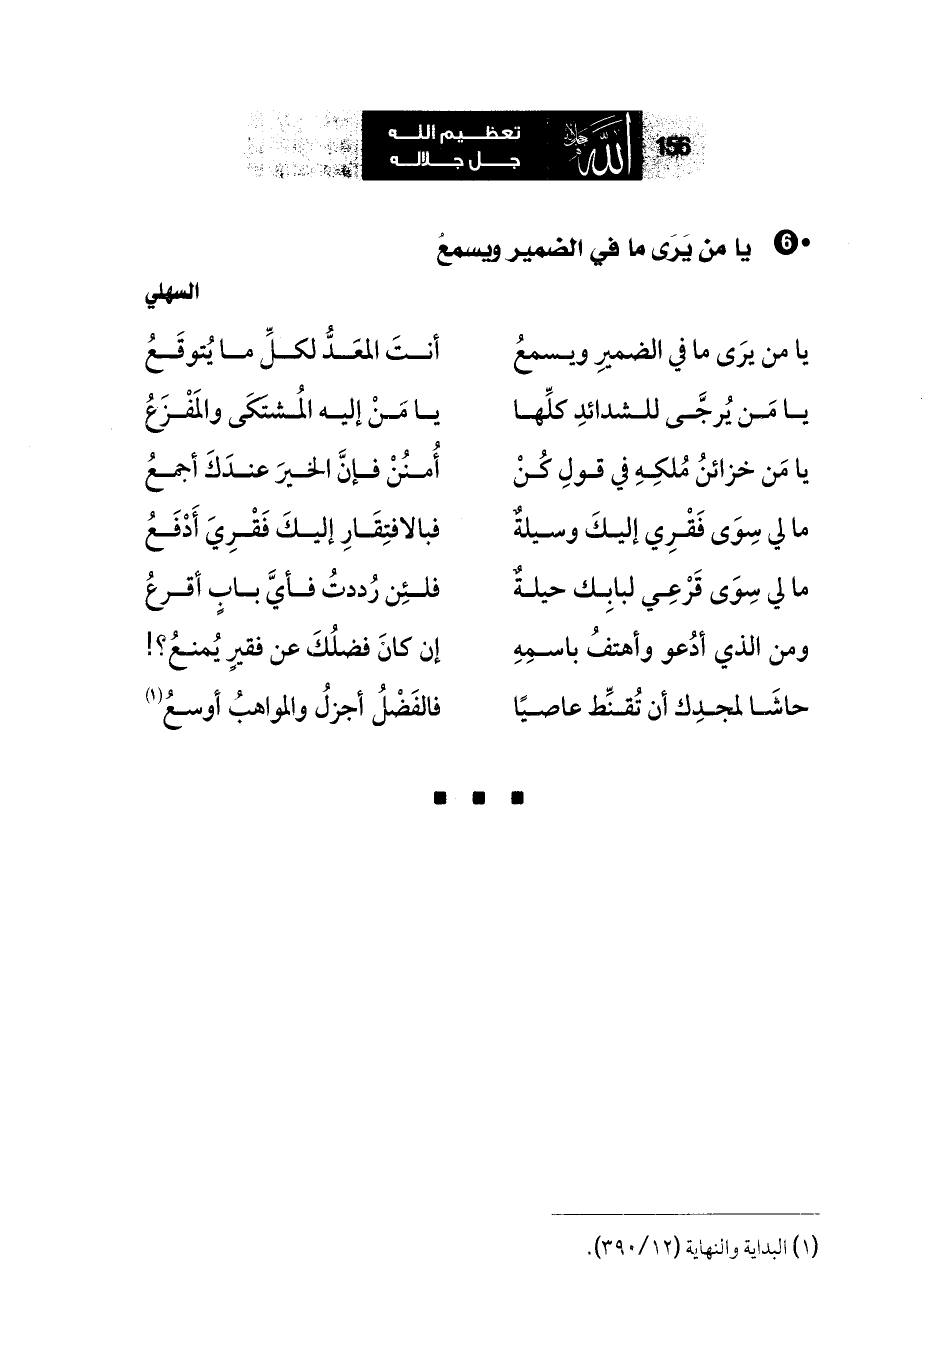 156
الله جل جلاله
تعظيم الله
جل جلاله
• 6 يا من يَرَى ما في الضمير ويسمعُ
السهلي
يا من يرَى ما في الضميرِ ويسمعُ أنتَ المعَدُّ لكلِّ ما يُتوقَّعُ
يا مَن يُرجَّى للشدائدِ كلِّها يا مَنْ إليه المُشتكَى والمَفْزَعُ
يا مَن خزائنُ مُلكِهِ في قولِ كُنْ أُمنُنْ فإنَّ الخيرَ عندَكَ أجمعُ
ما لي سِوَى فَقْرِي إليكَ وسيلةٌ فبالافتِقَارِ إليكَ فَقْرِيَ أَدْفَعُ
ما لي سِوَى قَرْعِي لبابِك حيلةٌ فلئِن رُددتُ فأيَّ بابٍ أقرعُ
ومن الذي أدْعو وأهتفُ باسمِهِ إن كانَ فضلُكَ عن فقيرٍ يُمنعُ؟!
حاشَا لمجدِك أن تُقنِّط عاصيًا فالفَضْلُ أجزلُ والمواهبُ أوسعُ(١)
(١) البداية والنهاية (١٢/ ٣٩٠).